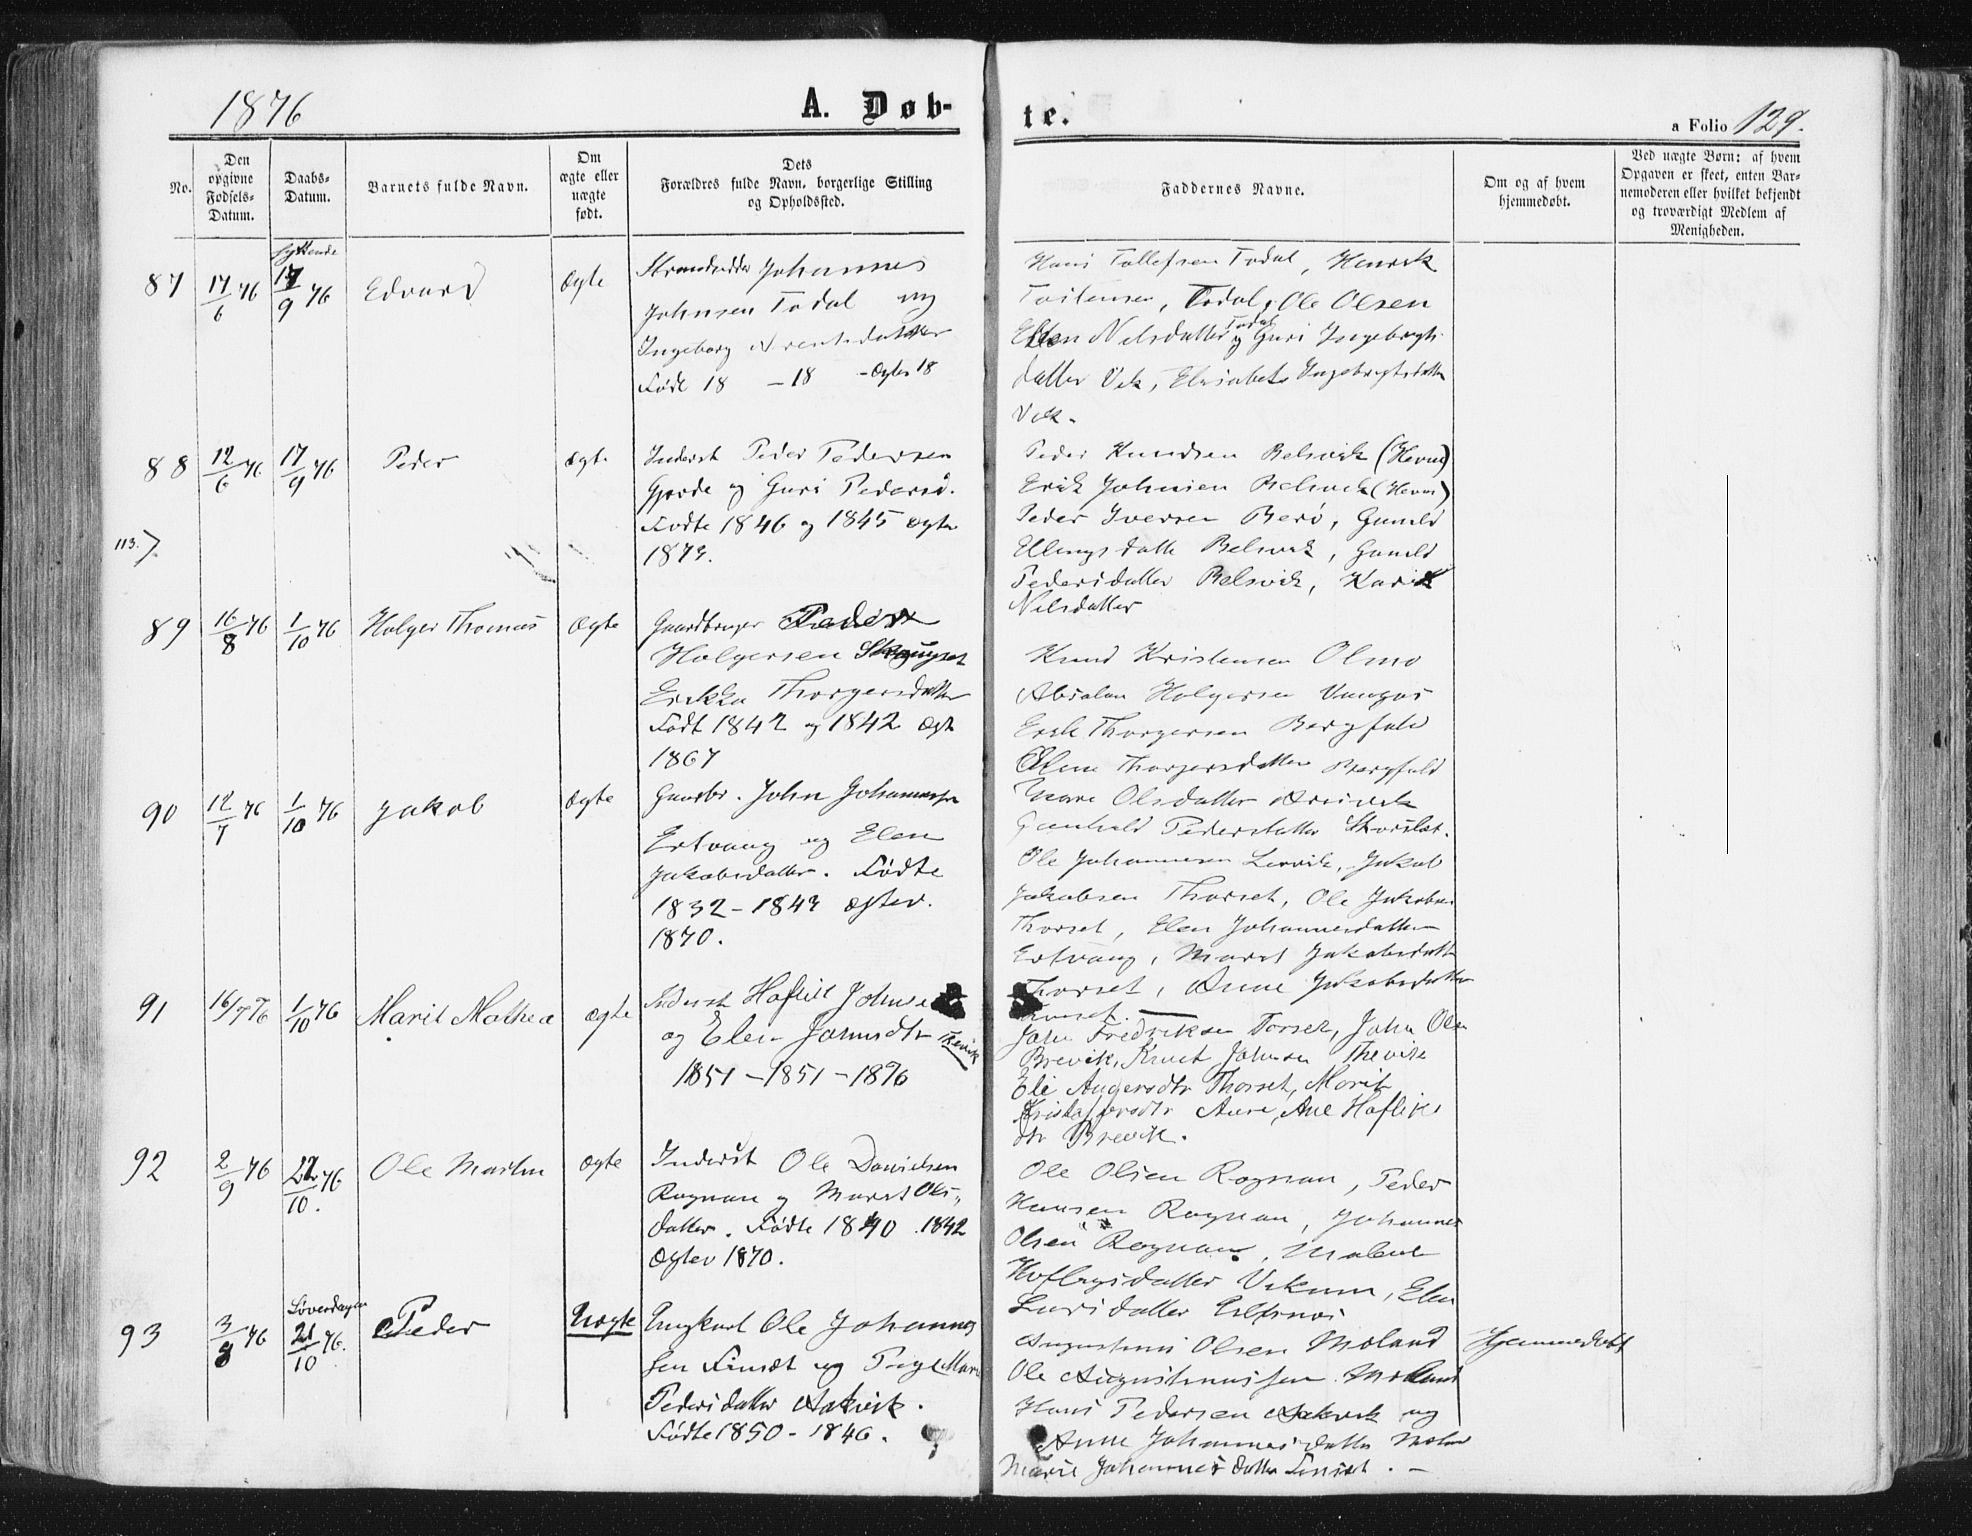 1876
A. Døb-
te.
a Folio 129.
No.
Den
opgivne
Fødsels-
Datum.
Daabs-
Datum.
Barnets fulde Navn.
Om
ægte eller
uægte
født.
Dets
Forældres fulde Navn, borgerlige Stilling
og Opholdssted.
Faddernes Navne.
Om og af hvem
hjemmedøbt.
Ved uægte Børn: af hvem
Opgaven er skeet, enten Bar-
nemoderen eller hvilket bekjendt
og troværdigt Medlem af
Menigheden.
87
17/6 76
syttende
17/9 76
Edvard
Ægte
Strandsidder Johannes
Johnsen Todal og
Ingeborg Arentsdatter
Født 18 - 18 - Ægtev 18
Hans Tollefsen Todal, Henrik
Tostensen, Todal, Ole Olsen
Todal
Elen Nilsdatter og Guri Ingebrigts
datter Vik, Elisabet Ingebrigtsdatter
Vik.
88
12/6 76
17/9 76
Peder
ægte
Inderst Peder Pedersen
Gjerde og Guri Pedersd.
Fødte 1846 og 1845 ægtev
1873.
Peder Knudsen Belsvik (Hevne)
Erik Johnsen Belsvik (Hevne)
Peder Iversen Berø, Gunild
Ellingsdatter Belsvik, Gunild
Pedersdatter Belsvik, Kari
Nilsdatter
113.
89
16/8 76
1/10 76
Holger Thomas
Ægte
Gaardbruger Peder
Holgersen Skaugset
Erikka Thorgersdatter
Født 1842 og 1842 Ægt
1867
Knud Kristensen Olmo
Absalon Holgersen Vaagos
Erik Thorgersen Bergfald
Elene Thorgersdatter Bergfald
Mare Olsdatter Arnvik
Gunhild Pedersdatter Skorslet.
90
12/7 76
1/10 76
Jakob
Ægte
Gaardbr. John Johannesen
Ertvaag og Elen
Jakobsdatter. Fødte
1832 - 1843 ægtev.
1870.
Ole Johannesen Lervik, Jakob
Jakobsen Thorset, Ole Jakobsen
Thorset, Elen Johannesdatter
Ertvaag, Marit Jakobsdatter
Thorset, Anne Jakobsdatter
Thorset.
91
16/7 76
1/10 76
Marit Mathea
Ægte
Inderst Haflik Johnse
og Elen Johnsdtr Thevik
1851 - 1851 - 1876
John Fredriksen Torset, John Olsen
Brevik, Knut Johnsen Thevik
Eli Augersdtr Thorset, Marit
Kristoffersdtr Aure, Ane Hafliks
dtr Brevik.
92
2/9 76
22/10 76
Ole Martin
Ægte
Inderst Ole Davidsen
Rognan og Marit Ols-
datter. Fødte 1840. 1842
Ægtev 1870.
Ole Olsen Rognan, Peder
Hansen Rognan, Johannes
Olsen Rognan, Malene
Haflogsdatter Vikum, Elen
Larsdatter Estensnes
93
3/8 76
Søverdagen
21/10 76.
Peder
Uægte
Ungkarl Ole Johannes
sen Finset og Pige Marie
Pedersdatter Aakvik.
Fødte 1850 - 1846.
Augustinus Olsen Moland
Ole Augustinussen Moland
Hans Pedersen Aakvik og
Anne Johannesdatter Moland
Marie Johannesdatter Finset. -
Hjemmedøbt